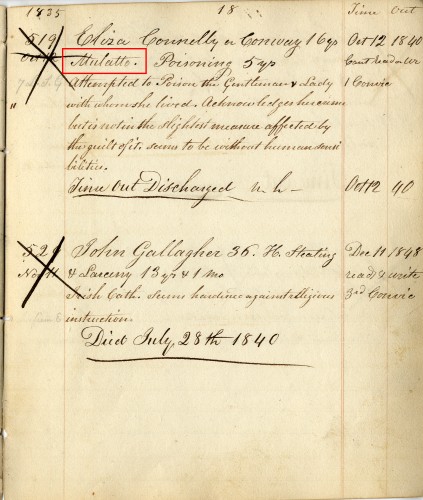 1835 18 Time Out
519 Eliza Connelly or Conway 16 ys Oct 12 1840
Mulatto. Poisoning 5 ys Cant read or Wr
Attempted to Poison the Gentleman & Lady 1 Convic
with whom she lived. Acknowledges her
but is not in the slightest measure affected by
the guilt of it, seems to be without human sensi
bilities.
Time Out Discharged Oct 12 40
529 John Gallagher 36. H. Steating Dec 11 1848
& Larceny 13 ys & 1 mo read & write
Irish Cath. Seems hardened against religious 3rd Convic
instruction.
Died July, 28th 1840